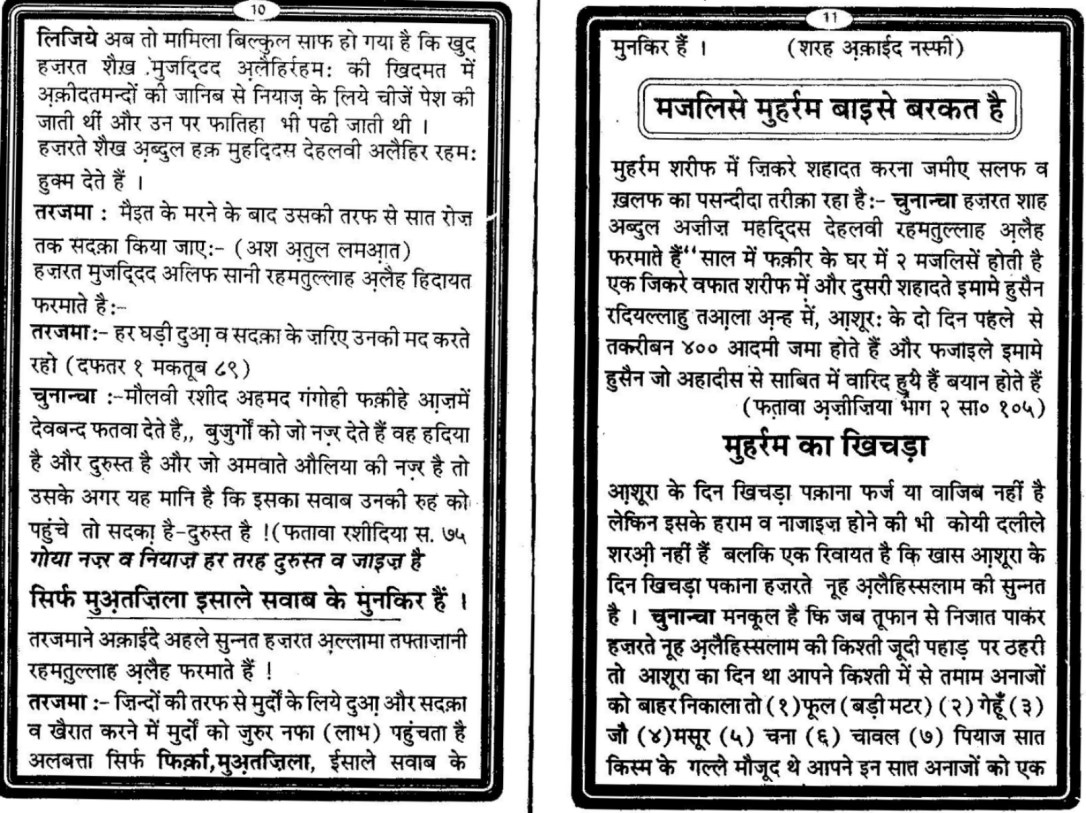 10
लिजिये अब तो मामिला बिल्कुल साफ हो गया है कि खुद
हज़रत शैख़ .मुजदि्दद अ़लैहिर्रहम: की खिदमत में
अ़क़ीदतमन्दों की जानिब से नियाज़ के लिये चीजें पेश की
जाती थीं और उन पर फातिहा भी पढी जाती थी ।
हज़रते शैख अ़ब्दुल हक़ मुहदि्दस देहलवी अलैहिर रहम:
हुक्म देते हैं ।
तरजमा : मैइत के मरने के बाद उसकी तरफ से सात रोज़
तक सदक़ा किया जाए:- (अश अ़तुल लमआ़त)
हज़रत मुजदि्दद अलिफ सानी रहमतुल्लाह अ़लैह हिदायत
फरमाते है:-
तरजमा:- हर घड़ी दुआ़ व सदक़ा के जरिए उनकी मद करते
रहो (दफतर १ मकतूब ८९)
चुनान्चा :-मौलवी रशीद अहमद गंगोही फक़ीहे आज़में
देवबन्द फतवा देते है,, बुजुर्गों को जो नज़्र देते हैं वह हदिया
है और दुरुस्त है और जो अमवाते औलिया की नज़्र है तो
उसके अगर यह मानि है कि इसका सवाब उनकी रुह को
पहुंचे तो सदक़ा है-दुरुस्त है !(फतावा रशीदिया स. ७५
गोया नज़्र व नियाज़ हर तरह दुरुस्त व जाइज़ है
सिर्फ मुअ़तज़िला इसाले सवाब के मुंनकिर हैं ।
तरजमाने अक़ाईदे अहले सुन्नत हज़रत अ़ल्लामा तफ्ताज़ानी
रहमतुल्लाह अ़लैह फरमाते हैं !
तरजमा :- ज़िन्दों की तरफ से मुर्दों के लिये दुआ़ और सदक़ा
व खैरात करने में मुर्दों को जुरुर नफा (लाभ) पहुंचता है
अलबत्ता सिर्फ फिर्क़ा,मुअ़तज़िला, ईसाले सवाब के
11
मुनकिर हैं । (शरह अ़क़ाईद नस्फी)
मजलिसे मुहर्रम बाइसे बरकत है
मुहर्रम शरीफ में ज़िकरे शहादत करना जमीए सलफ व
ख़लफ का पसन्दीदा तरीक़ा रहा है:- चुनान्चा हज़रत शाह
अब्दुल अज़ीज़ महदि्दस देहलवी रहमतुल्लाह अ़लैह
फरमाते हैं“साल में फक़ीर के घर में २ मजलिसें होती है
एक जिकरे वफात शरीफ में और दुसरी शहादते इमामे हुसैन
रदियल्लाहु तआ़ला अ़न्ह में, आ़शूर: के दो दिन पहले से
तकरीबन ४०० आदमी जमा होते हैं और फजाइले इमामे
हुसैन जो अहादीस से साबित में वारिद हुये हैं बयान होते हैं
(फ़तावा अ़ज़ीज़िया भाग २ सा० १०५)
मुहर्रम का खिचड़ा
आ़शूरा के दिन खिचड़ा पक़ाना फर्ज या वाजिब नहीं है
लेकिन इसके हराम व नाजाइज़ होने की भी कोयी दलीले
शरअ़ी नहीं हैं बलकि एक रिवायत है कि खास आ़शूरा के
दिन खिचड़ा पकाना हज़रते नूह अ़लैहिस्सलाम की सुन्नत
है । चुनान्चा मनकूल है कि जब तूफान से निजात पाकर
हज़रते नूह अ़लैहिस्सलाम की किश्ती जूदी पहाड़ पर ठहरी
तो आशूरा का दिन था आपने किश्ती में से तमाम अनाजों
को बाहर निकाला तो (१)फूल(बड़ी मटर) (२)गेहूँ(३)
जौ (४)मसूर (५) चना (६) चावल (७) पियाज सात
किस्म के गल्ले मौजूद थे आपने इन सात अनाजों को एक